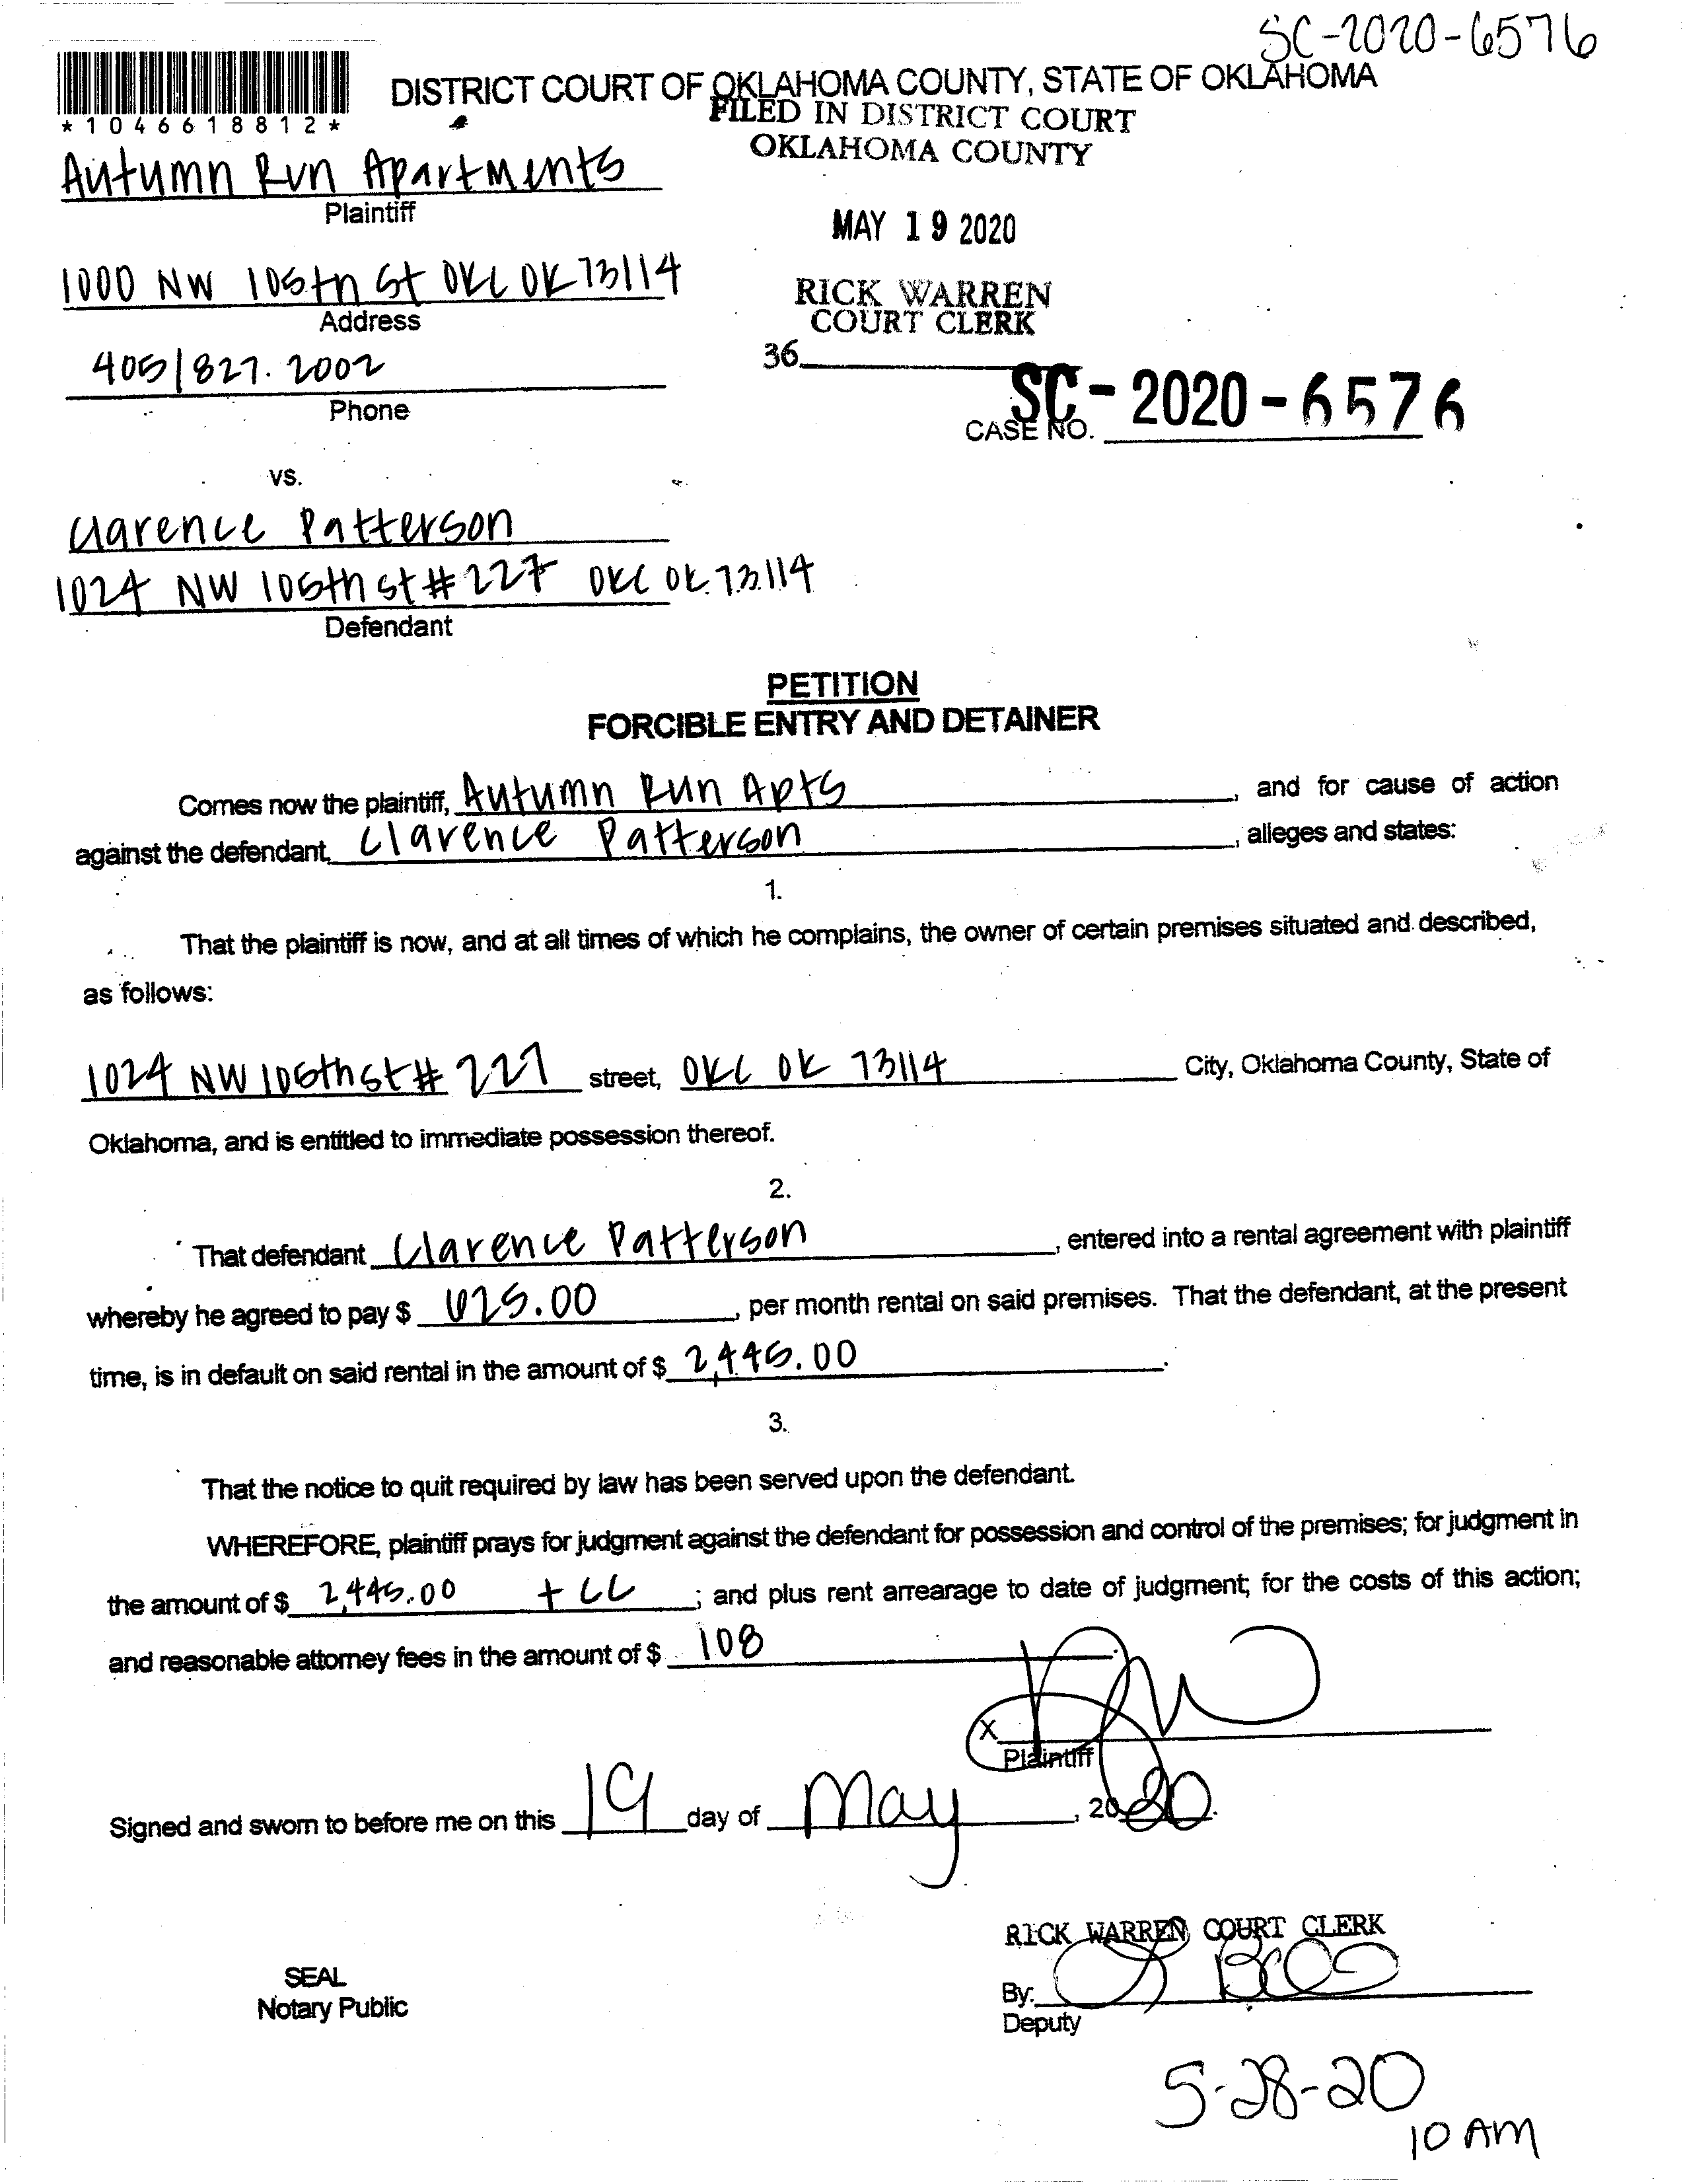 SC-2020-6576
DISTRICT COURT OF OKLAHOMA COUNTY, STATE OF OKLAHOMA
*1046618812*
FILED IN DISTRICT COURT
OKLAHOMA COUNTY
Autumn Run Apartments
Plaintiff
MAY 19 2020
1000 NW 105th St OKC OK 73114
Address
RICK WARREN
COURT CLERK
405|827.2002
36
Phone
CASE NO. SC-2020-6576
vs.
Clarence Patterson
1024 NW 105th st # 227 OKC OK 73114
Defendant
PETITION
FORCIBLE ENTRY AND DETAINER
Comes now the plaintiff, Autumn Run Apts, and for cause of action
against the defendant, Clarence Patterson, alleges and states:
1.
That the plaintiff is now, and at all times of which he complains, the owner of certain premises situated and described,
as follows:
1024 NW 105th st # 227 street, OKC OK 73114 City, Oklahoma County, State of
Oklahoma, and is entitled to immediate possession thereof.
2.
That defendant Clarence Patterson, entered into a rental agreement with plaintiff
whereby he agreed to pay $ 625.00, per month rental on said premises. That the defendant, at the present
time, is in default on said rental in the amount of $ 2,445.00.
3.
That the notice to quit required by law has been served upon the defendant.
WHEREFORE, plaintiff prays for judgment against the defendant for possession and control of the premises; for judgment in
the amount of $ 2,445.00 + CC; and plus rent arrearage to date of judgment; for the costs of this action;
and reasonable attorney fees in the amount of $ 108.
X
Plaintiff
Signed and sworn to before me on this 19 day of May, 2020.
RICK WARREN COURT CLERK
SEAL
Notary Public
By:
Deputy
5-28-20
10 AM